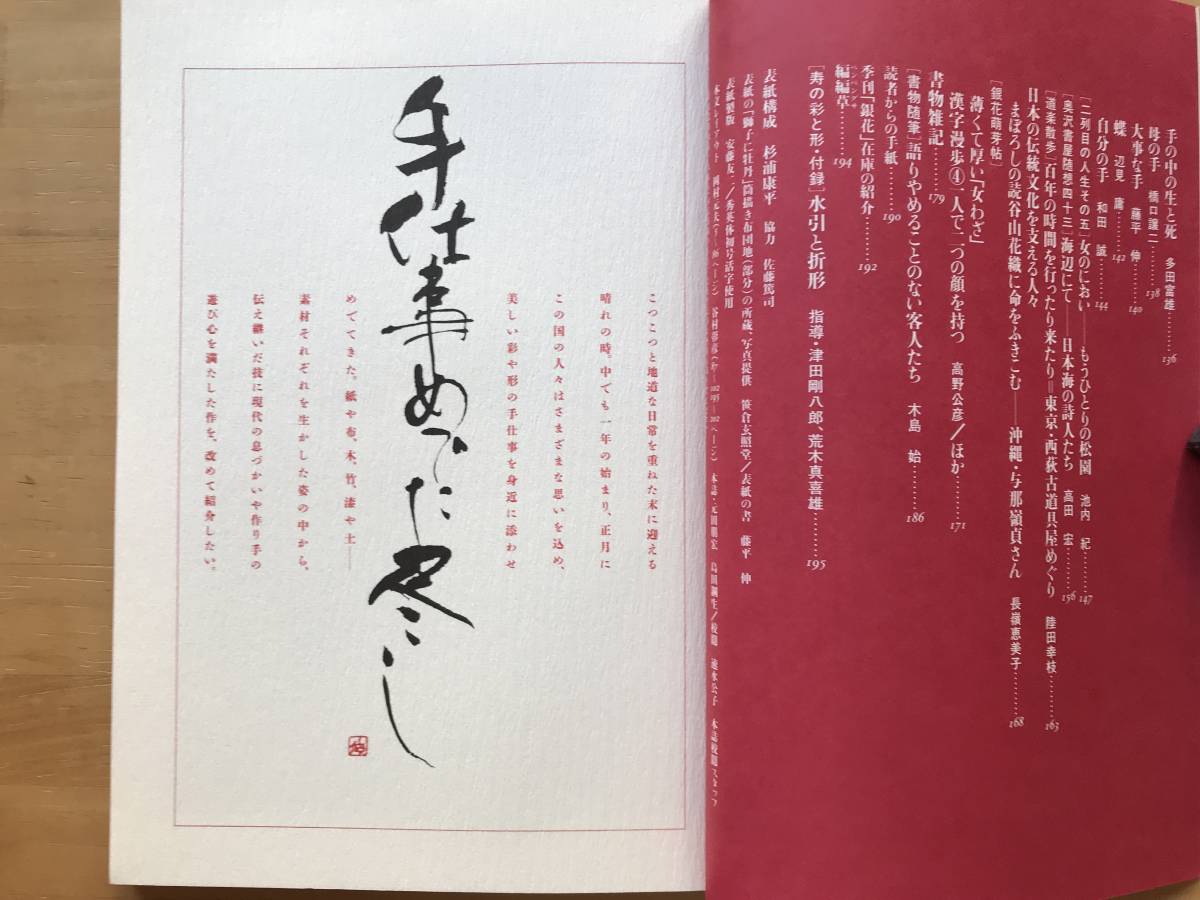 手の中の生と死　多田富雄………136
母の手　橋口譲二………138
大事な手　藤平　伸………140
蝶　辺見　庸………142
自分の手　和田　誠………144
［二列目の人生その五］女のにおい――もうひとりの松園　池内　紀………147
［奥沢書屋随想四十三］海辺にて――日本海の詩人たち　高田　宏………156
［道楽散歩］百年の時間を行ったり来たり＝東京・西荻古道具屋めぐり　陸田幸枝………163
日本の伝統文化を支える人々
まぼろしの読谷山花織に命をふきこむ――沖縄・与那嶺貞さん　長嶺恵美子………168
［銀花萌芽帖］
薄くて厚い「女わざ」
漢字漫歩④一人で二つの顔を持つ　高野公彦／ほか………171
書物雑記………179
［書物随筆］語りやめることのない客人たち　木島　始………186
読者からの手紙………190
季刊「銀花」在庫の紹介………192
編編草………194
ペンペングサ
［寿の彩と形・付録］水引と折形　指導・津田剛八郎、荒木真喜雄………195
表紙構成　杉浦康平　協力　佐藤篤司
表紙の「獅子に牡丹」筒描き布団地（部分）の所蔵、写真提供　笹倉玄照堂／表紙の書　藤平　伸
表紙製版　安藤友二／秀英体初号活字使用
手仕事めでた尽くし
こつこつと地道な日常を重ねた末に迎える
晴れの時。中でも一年の始まり、正月に
この国の人々はさまざまな思いを込め、
美しい彩や形の手仕事を身近に添わせ
めでてきた。紙や布、木、竹、漆や土――
素材それぞれを生かした姿の中から、
伝え継いだ技に現代の息づかいや作り手の
遊び心を満たした作を、改めて紹介したい。